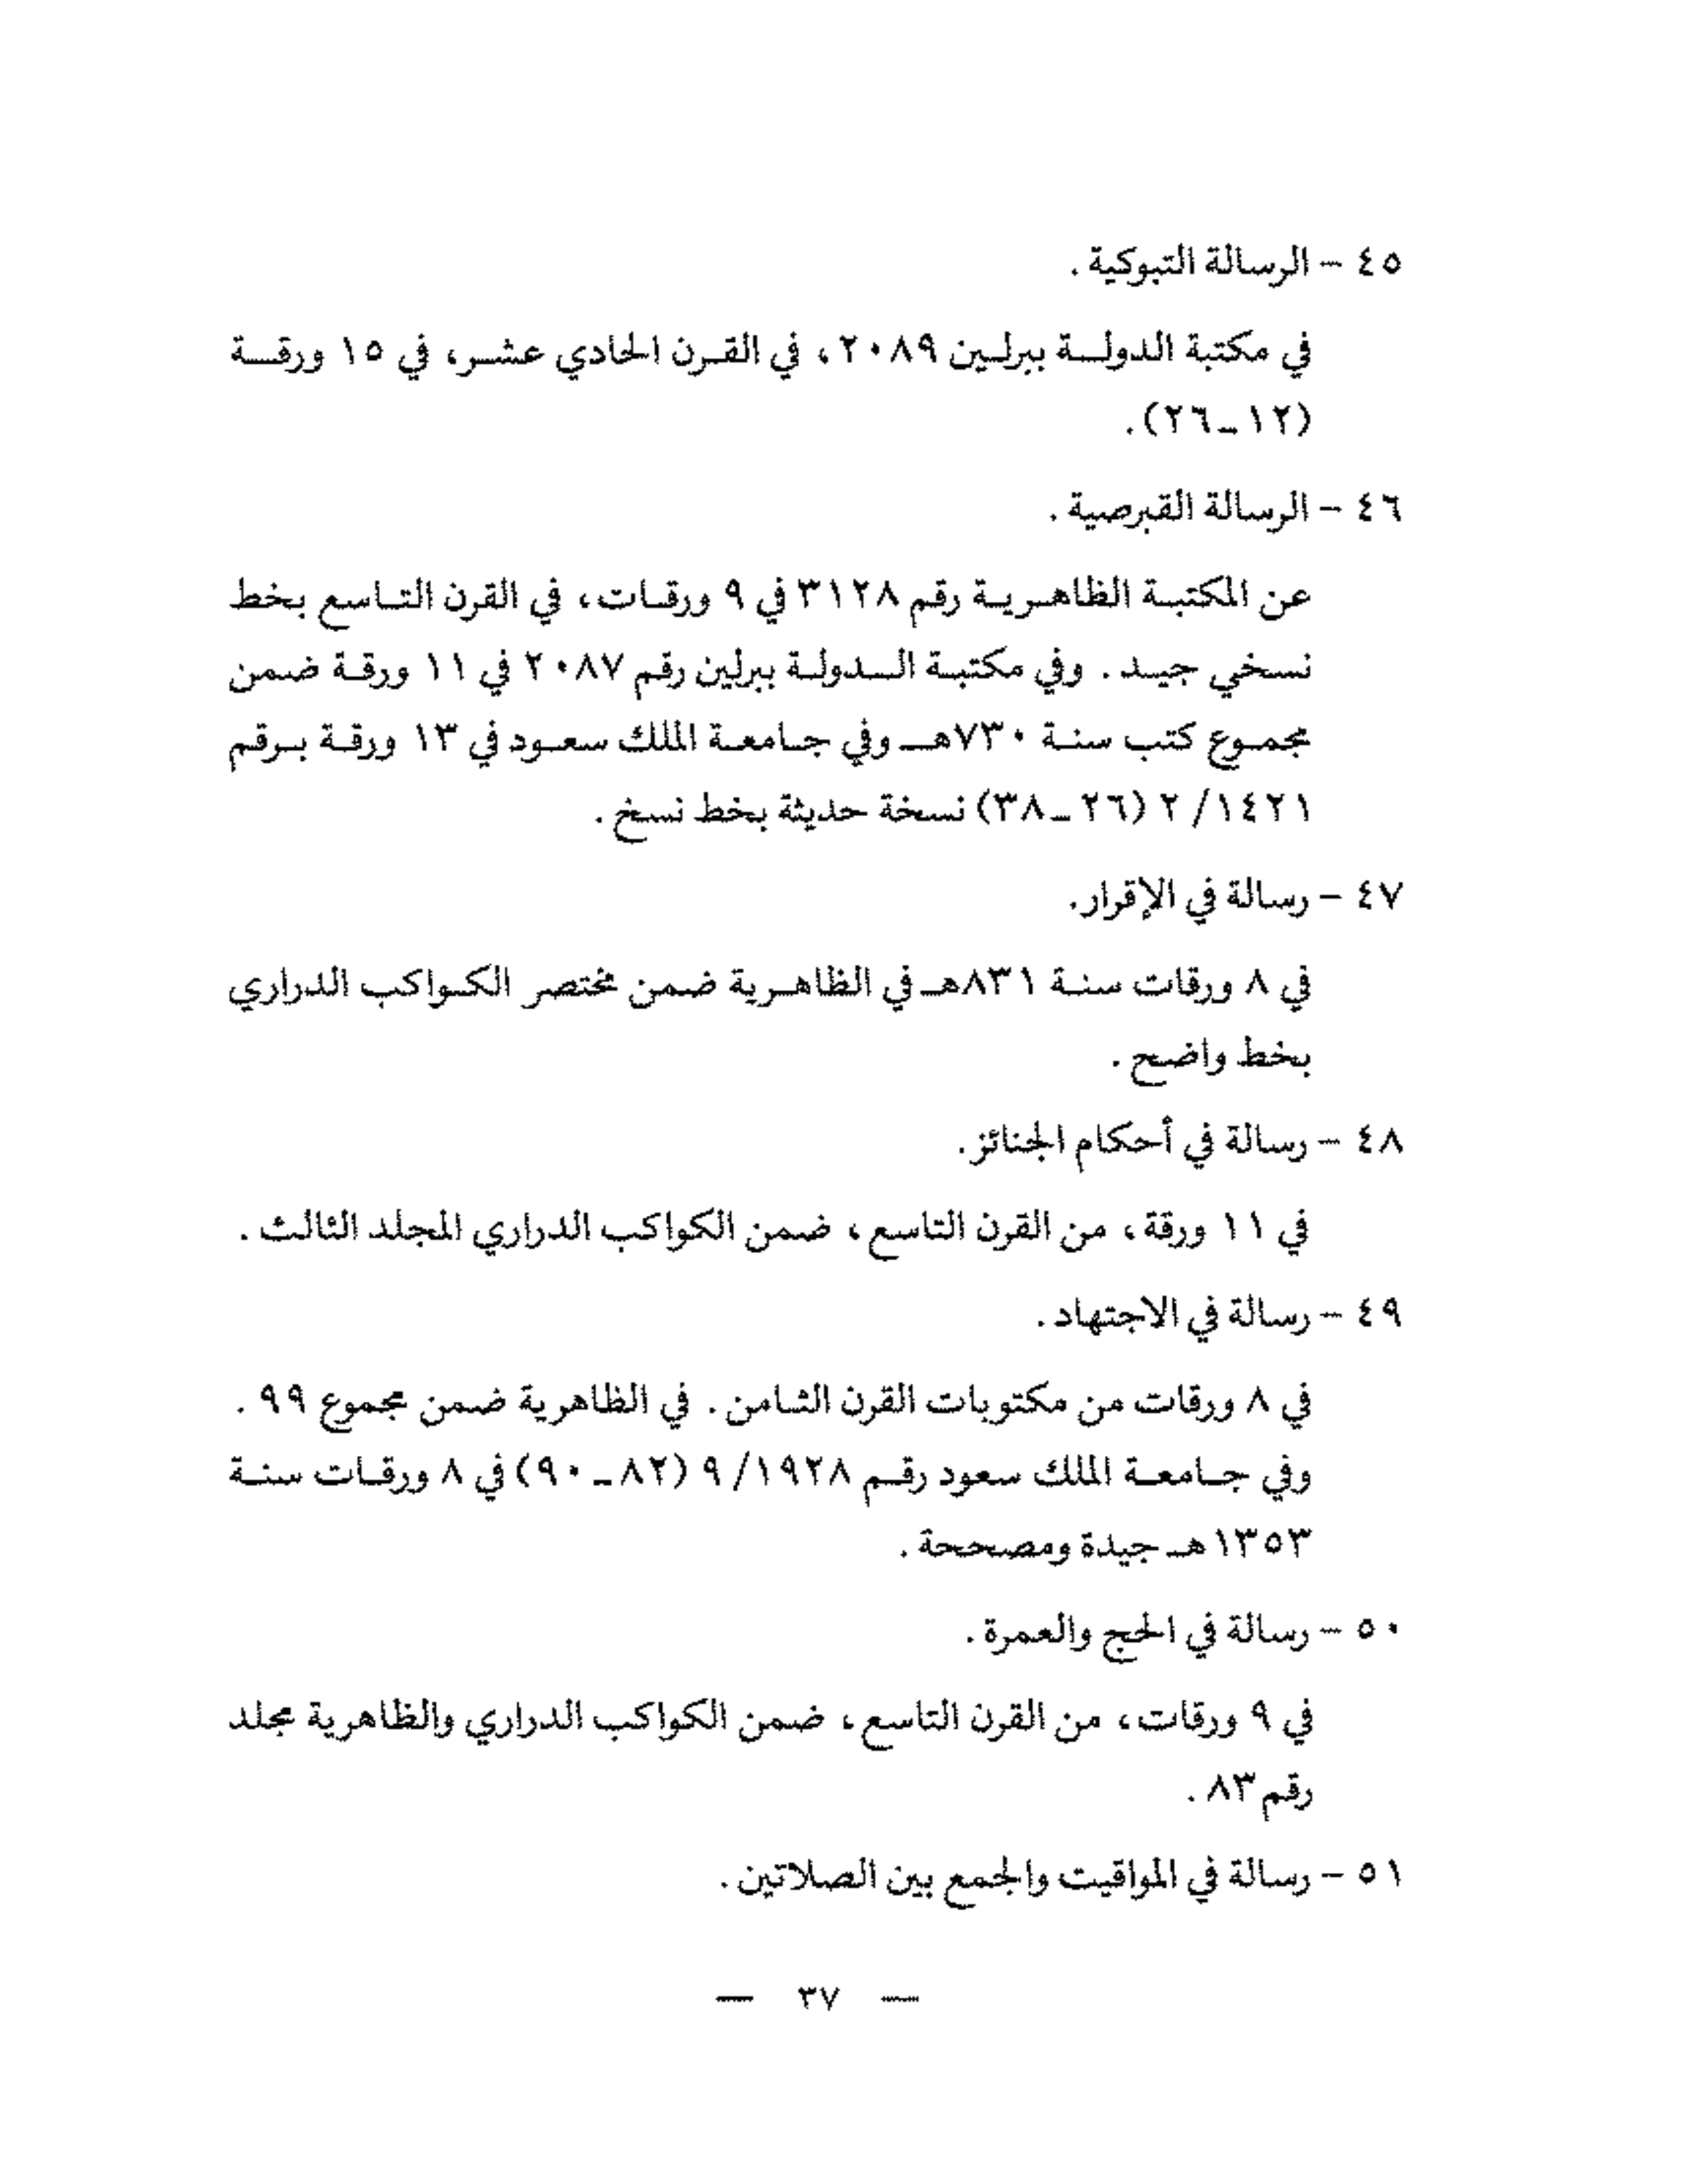 ٤٥ – الرسالة التبوكية .
في مكتبة الدولة ببرلين ٢٠٨٩ ، في القرن الحادي عشر، في ١٥ ورقة
(١٢ـ٢٦) .
٤٦ – الرسالة القبرصية .
عن المكتبة الظاهرية رقم ٣١٢٨ في ٩ ورقات ، في القرن التاسع بخط
نسخي جيد . وفي مكتبة الدولة ببرلين رقم ٢٠٨٧ في ١١ ورقة ضمن
مجموع كتب سنة ٧٣٠هـ وفي جامعة الملك سعود في ١٣ ورقة برقم
١٤٢١/ ٢ (٢٦ـ٣٨) نسخة حديثة بخط نسخ .
٤٧ – رسالة في الإقرار.
في ٨ ورقات سنة ٨٣١هـ في الظاهرية ضمن مختصر الكواكب الدراري
بخط واضح .
٤٨ – رسالة في أحكام الجنائز.
في ١١ ورقة ، من القرن التاسع ، ضمن الكواكب الدراري المجلد الثالث .
٤٩ – رسالة في الاجتهاد .
في ٨ ورقات من مكتوبات القرن الثامن . في الظاهرية ضمن مجموع ٩٩ .
وفي جامعة الملك سعود رقم ١٩٢٨/ ٩ (٨٢ ـ ٩٠) في ٨ ورقات سنة
١٣٥٣هـ جيدة ومصححة .
٥٠ – رسالة في الحج والعمرة .
في ٩ ورقات ، من القرن التاسع ، ضمن الكواكب الدراري والظاهرية مجلد
رقم ٨٣ .
٥١ – رسالة في المواقيت والجمع بين الصلاتين .
— ٣٧ —